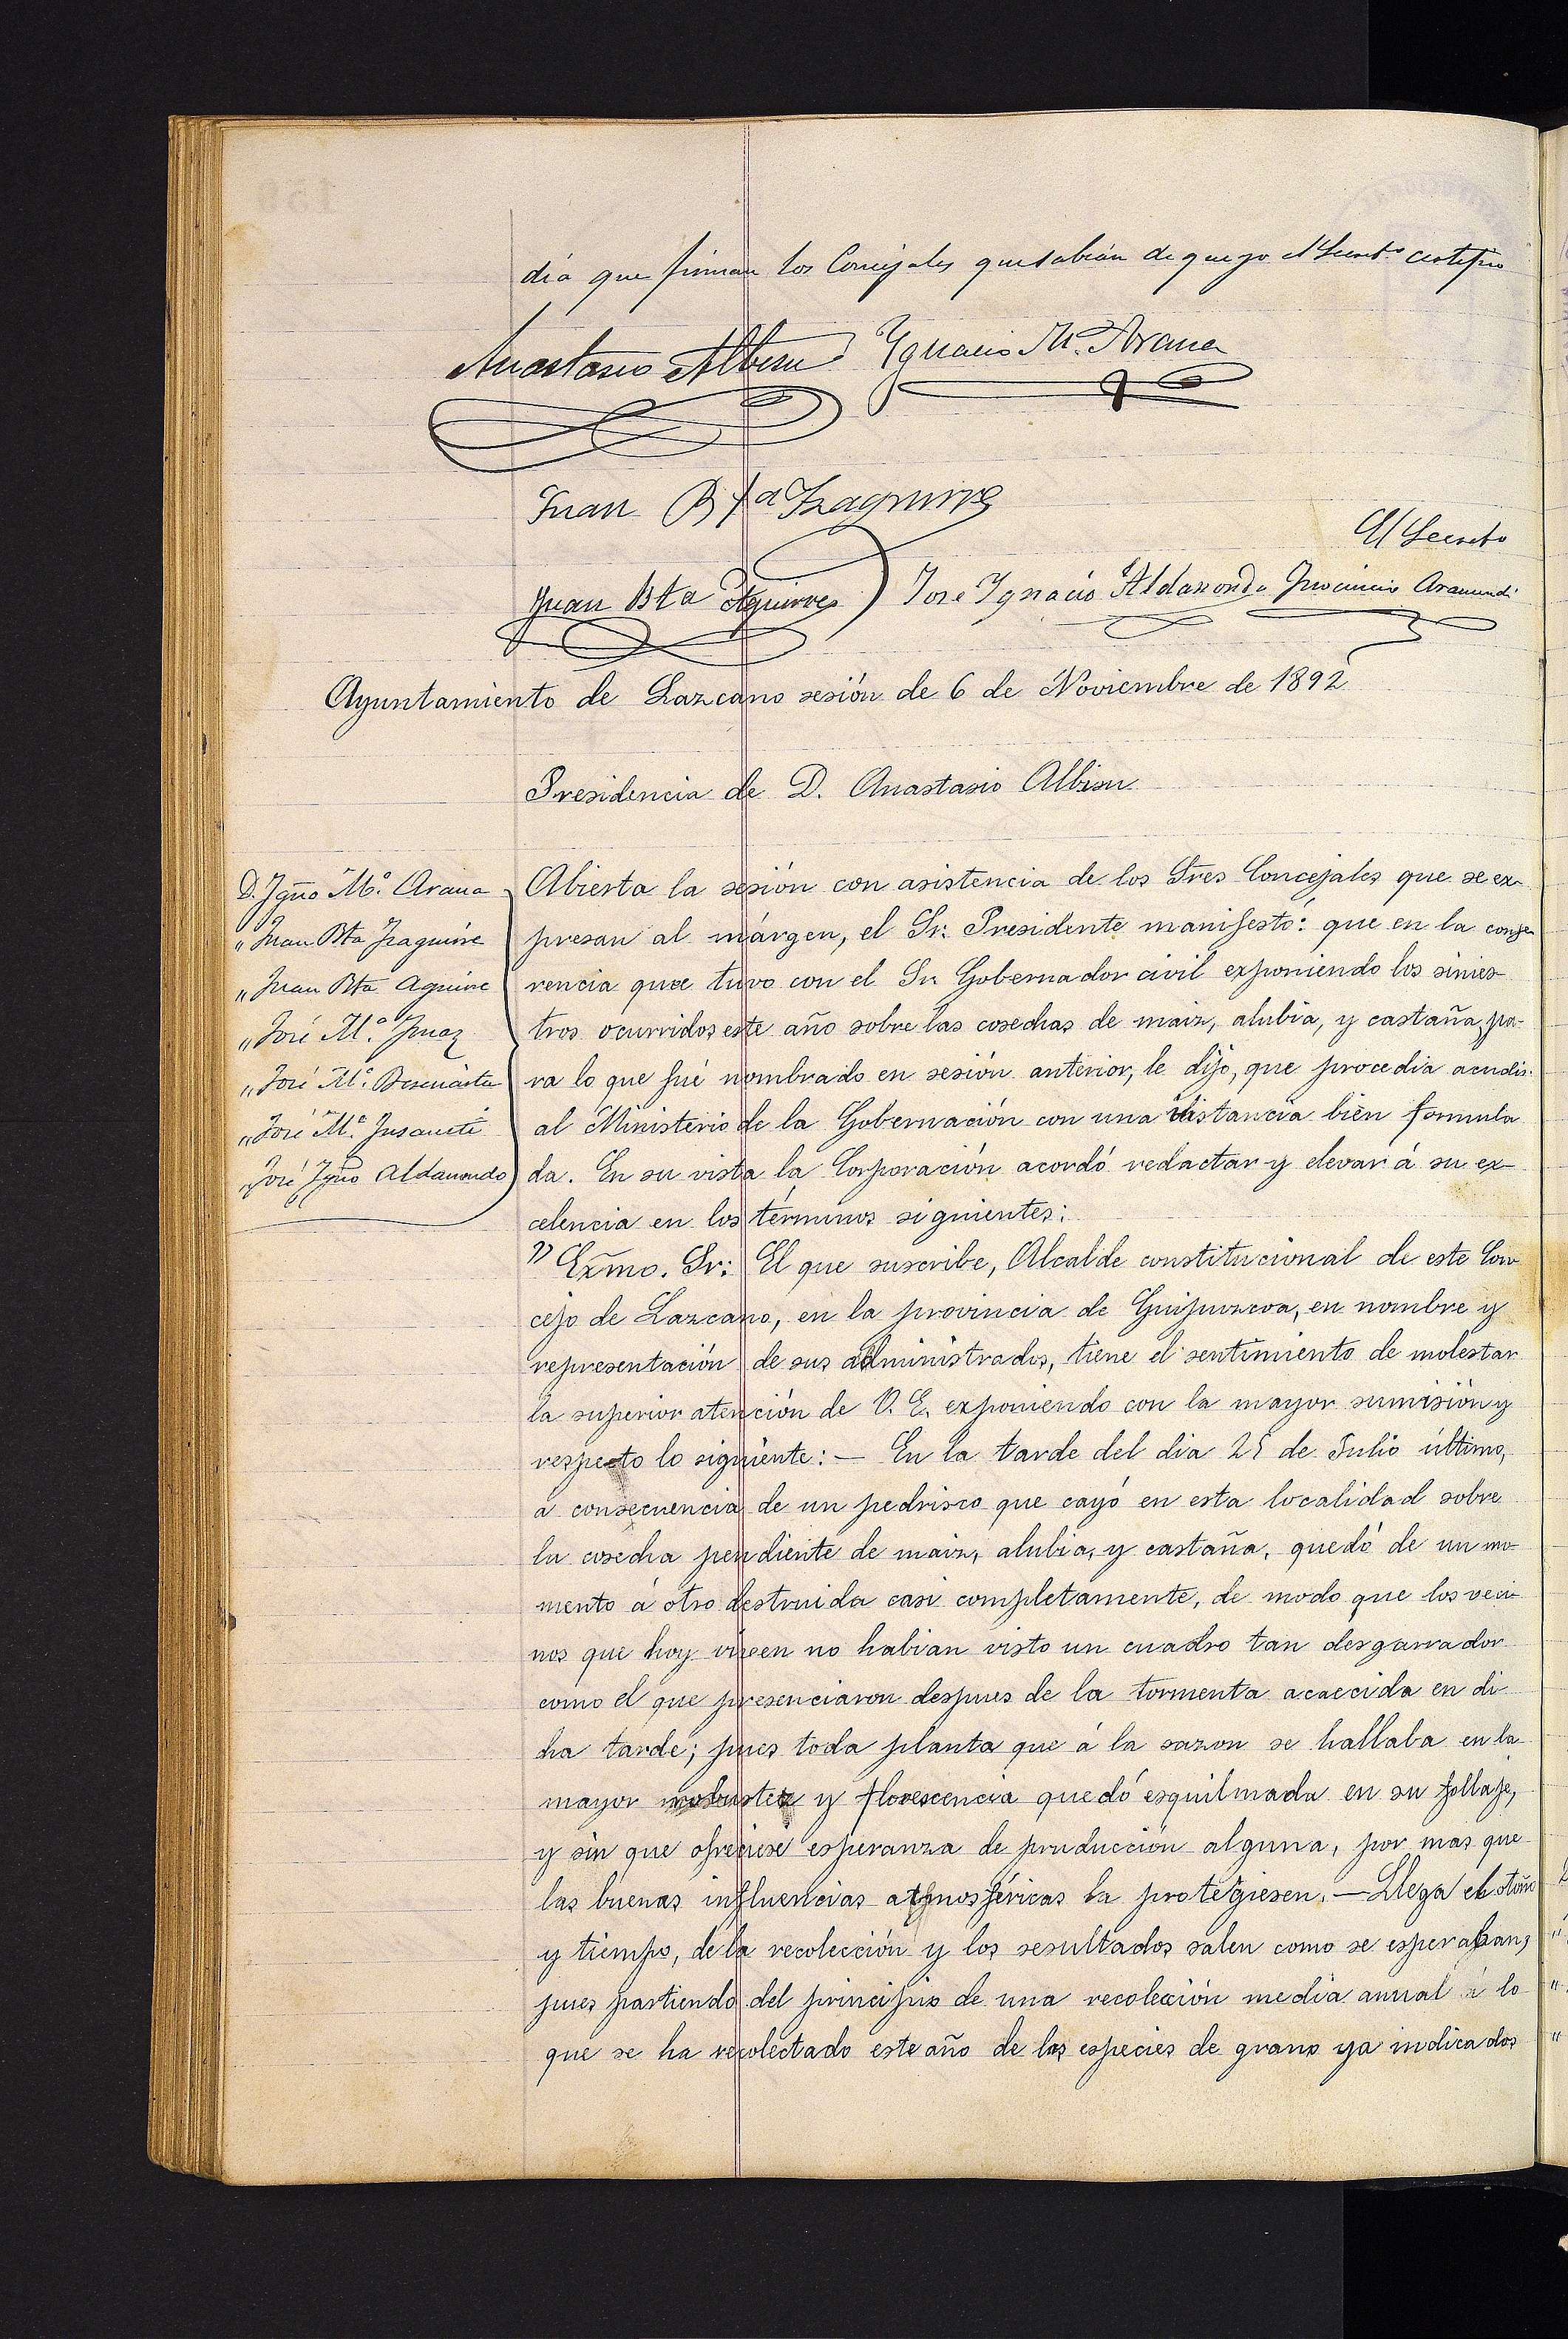 dia que firman los Concejales que sabian de que yo el Secret.º certifico
Anastasio Albisu Ygnacio M.ª Arana
Juan Bta Izaguirre
El Secreto
Juan Bta Aguirre Jose Ygnacio Aldasoro Aramendi
Ayuntamiento de Lazcano sesión de 6 de Noviembre de 1892
Presidencia de D. Anastasio Albisu
D. Ygño M.ª Arana
" Juan Bta Izaguirre
" Juan Bta Aguirre
" José M.ª
" José M.ª
" José M.ª
" José Ygño Aldasoro
Abierta la sesión con asistencia de los Sres Concejales que se ex-
presan al márgen, el Sr. Presidente manifestó: que en la confe-
rencia que tuvo con el Sr. Gobernador civil exponiendo los sinies-
tros ocurridos este año sobre las cosechas de maiz, alubia, y castaña, pa-
ra lo que fué nombrado en sesión anterior, le dijo, que procedia acudir
al Ministerio de la Gobernación con una instancia bien formula
da. En su vista la Corporación acordó redactar y elevar á su ex-
celencia en los términos siguientes:
" Exmo. Sr: El que suscribe, Alcalde constitucional de este Con
cejo de Lazcano, en la provincia de Guipuzcoa, en nombre y
representación de sus administrados, tiene el sentimiento de molestar
la superior atención de V. E. exponiendo con la mayor sumisión y
respecto lo siguiente: — En la tarde del dia 25 de Julio último,
a consecuencia de un pedrisco que cayó en esta localidad sobre
la cosecha pendiente de maiz, alubia, y castaña, quedó de un mo-
mento á otro destruida casi completamente, de modo que los veci-
nos que hoy viven no habian visto un cuadro tan desgarrador
como el que presenciaron despues de la tormenta acaecida en di-
ha tarde; pues toda planta que á la sazon se hallaba en la
mayor robustez y florescencia quedó esquilmada en su follaje,
y sin que ofreciese esperanza de producción alguna, por mas que
las buenas influencias atmosféricas la protegiesen. — Llega el otoño
y tiempo, de la recolección y los resultados salen como se esperaban,
pues partiendo del principio de una recolección media anual á lo
que se ha recolectado este año de las especies de grano ya indicados